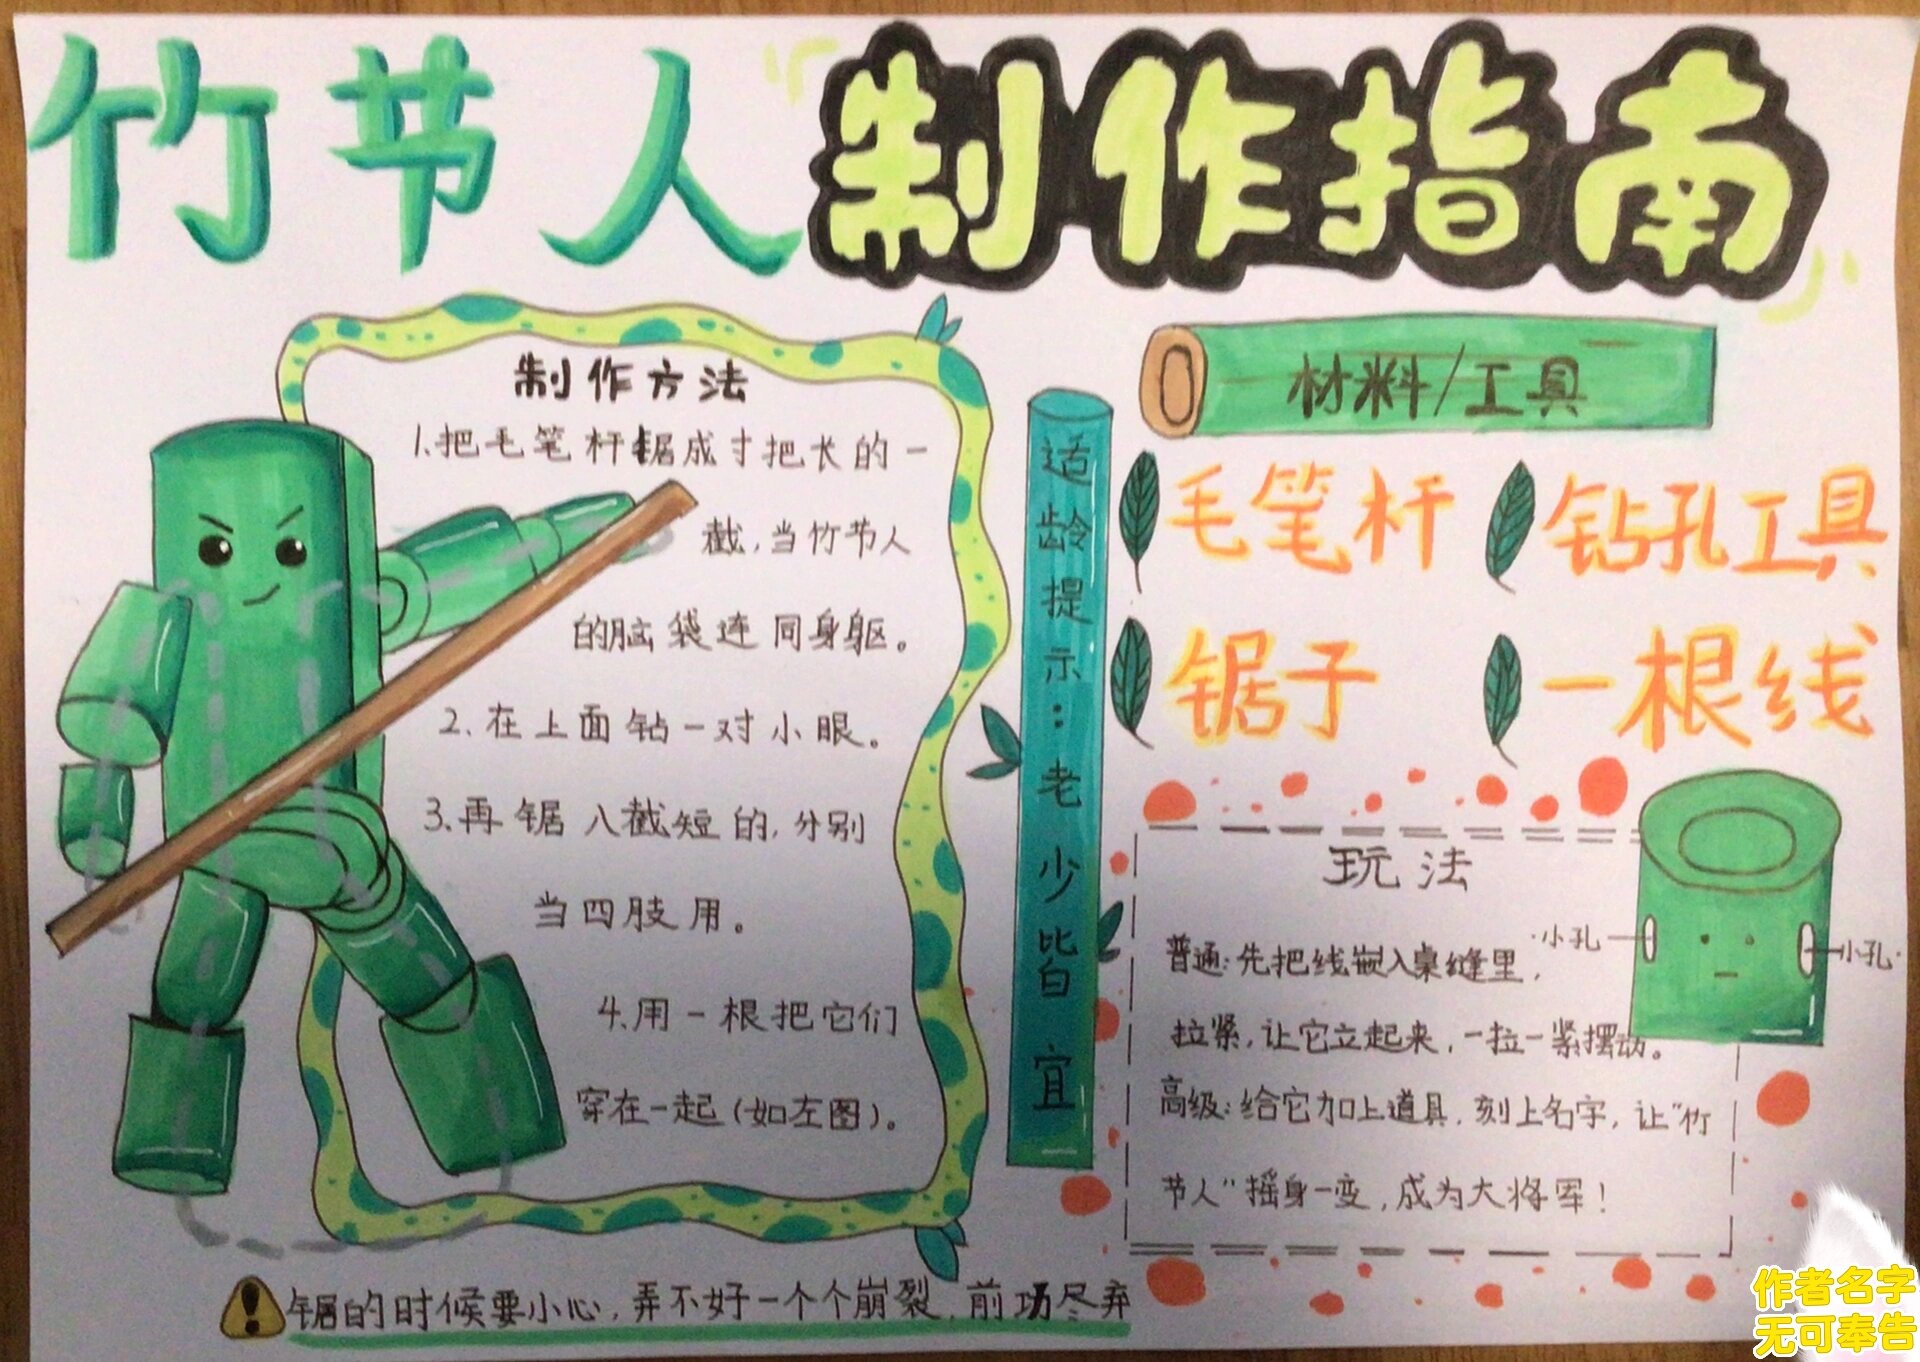 竹节人制作指南
制作方法
1.把毛笔杆锯成寸把长的一
截,当竹节人
的脑袋连同身躯。
2.在上面钻一对小眼。
3.再锯八截短的,分别
当四肢用。
4.用一根把它们
穿在一起(如左图)。
适龄提示:老少皆宜
材料/工具
毛笔杆
钻孔工具
锯子
一根线
玩法
普通:先把线嵌入桌缝里,
拉紧,让它立起来,一拉一紧摆动。
高级:给它加上道具,刻上名字,让"竹
节人"摇身一变,成为大将军!
小孔
小孔
锯的时候要小心,弄不好一个个崩裂,前功尽弃
作者名字
无可奉告